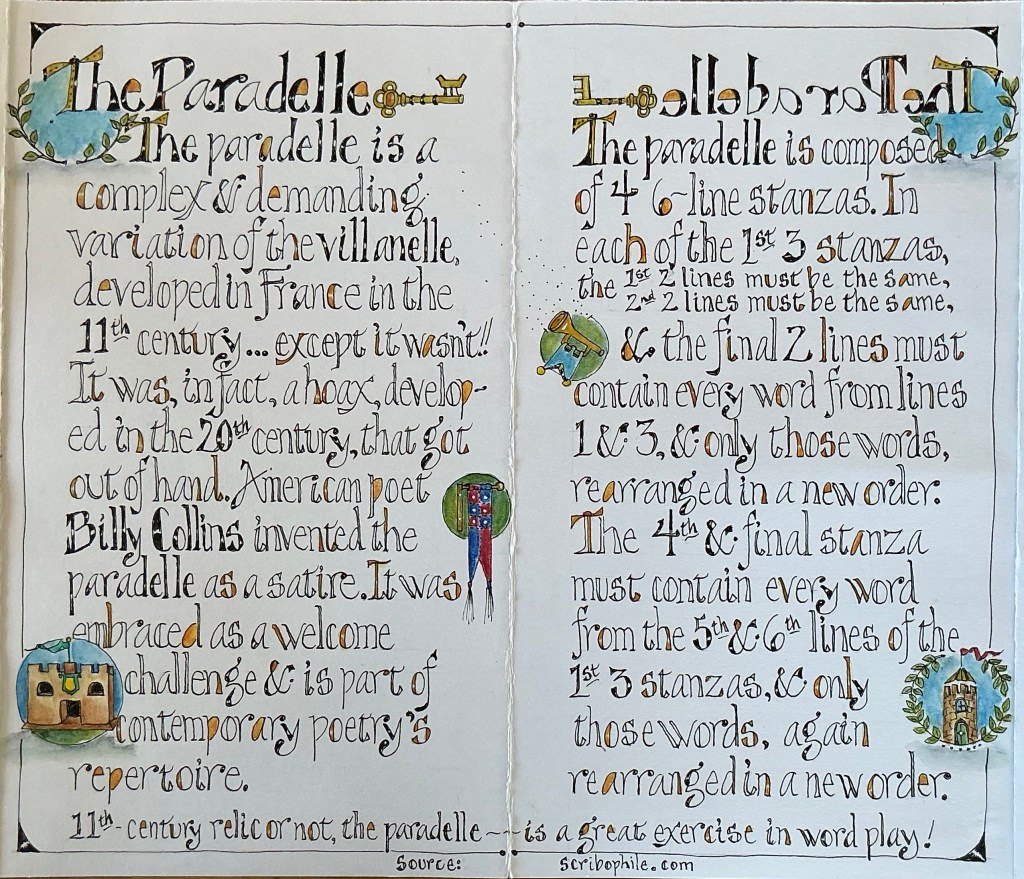 The Paradelle
The paradelle is a
complex & demanding
variation of the villanelle,
developed in France in the
11th century... except it wasn't!!
It was, in fact, a hoax, develop-
ed in the 20th century, that got
out of hand. American poet
Billy Collins invented the
paradelle as a satire. It was
embraced as a welcome
challenge & is part of
contemporary poetry's
repertoire.
The Paradelle
The paradelle is composed
of 4 6-line stanzas. In
each of the 1st 3 stanzas,
the 1st 2 lines must be the same,
2nd 2 lines must be the same,
& the final 2 lines must
contain every word from lines
1 & 3, & only those words,
rearranged in a new order.
The 4th & final stanza
must contain every word
from the 5th & 6th lines of the
1st 3 stanzas, & only
those words, again
rearranged in a new order.
11th-century relic or not, the paradelle ~~ is a great exercise in word play!
Source: scribophile.com